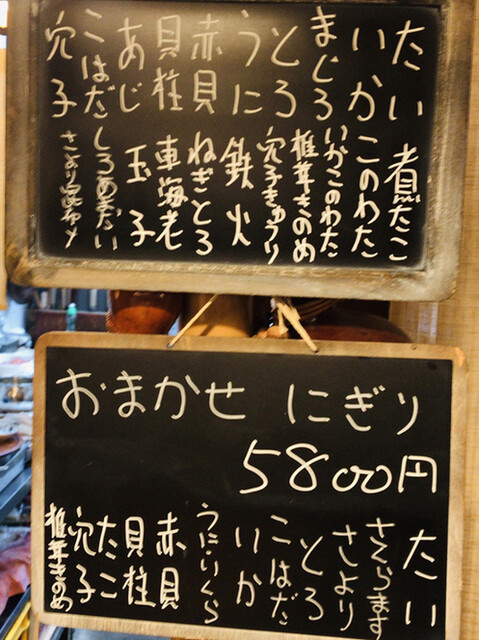 たい 煮たこ
いか このわた
まぐろ いかこのわた
とろ 椎茸きのめ
うに 穴子きゅうり
赤貝 鉄火
貝柱 ねぎとろ
あじ 車海老
こはだ 玉子
穴子 しろあまだい
さより昆布〆
おまかせ にぎり
5800円
たい
さくらます
さより
とろ
こはだ
いか
うに・いくら
赤貝
貝柱
たこ
穴子
椎茸きのめ